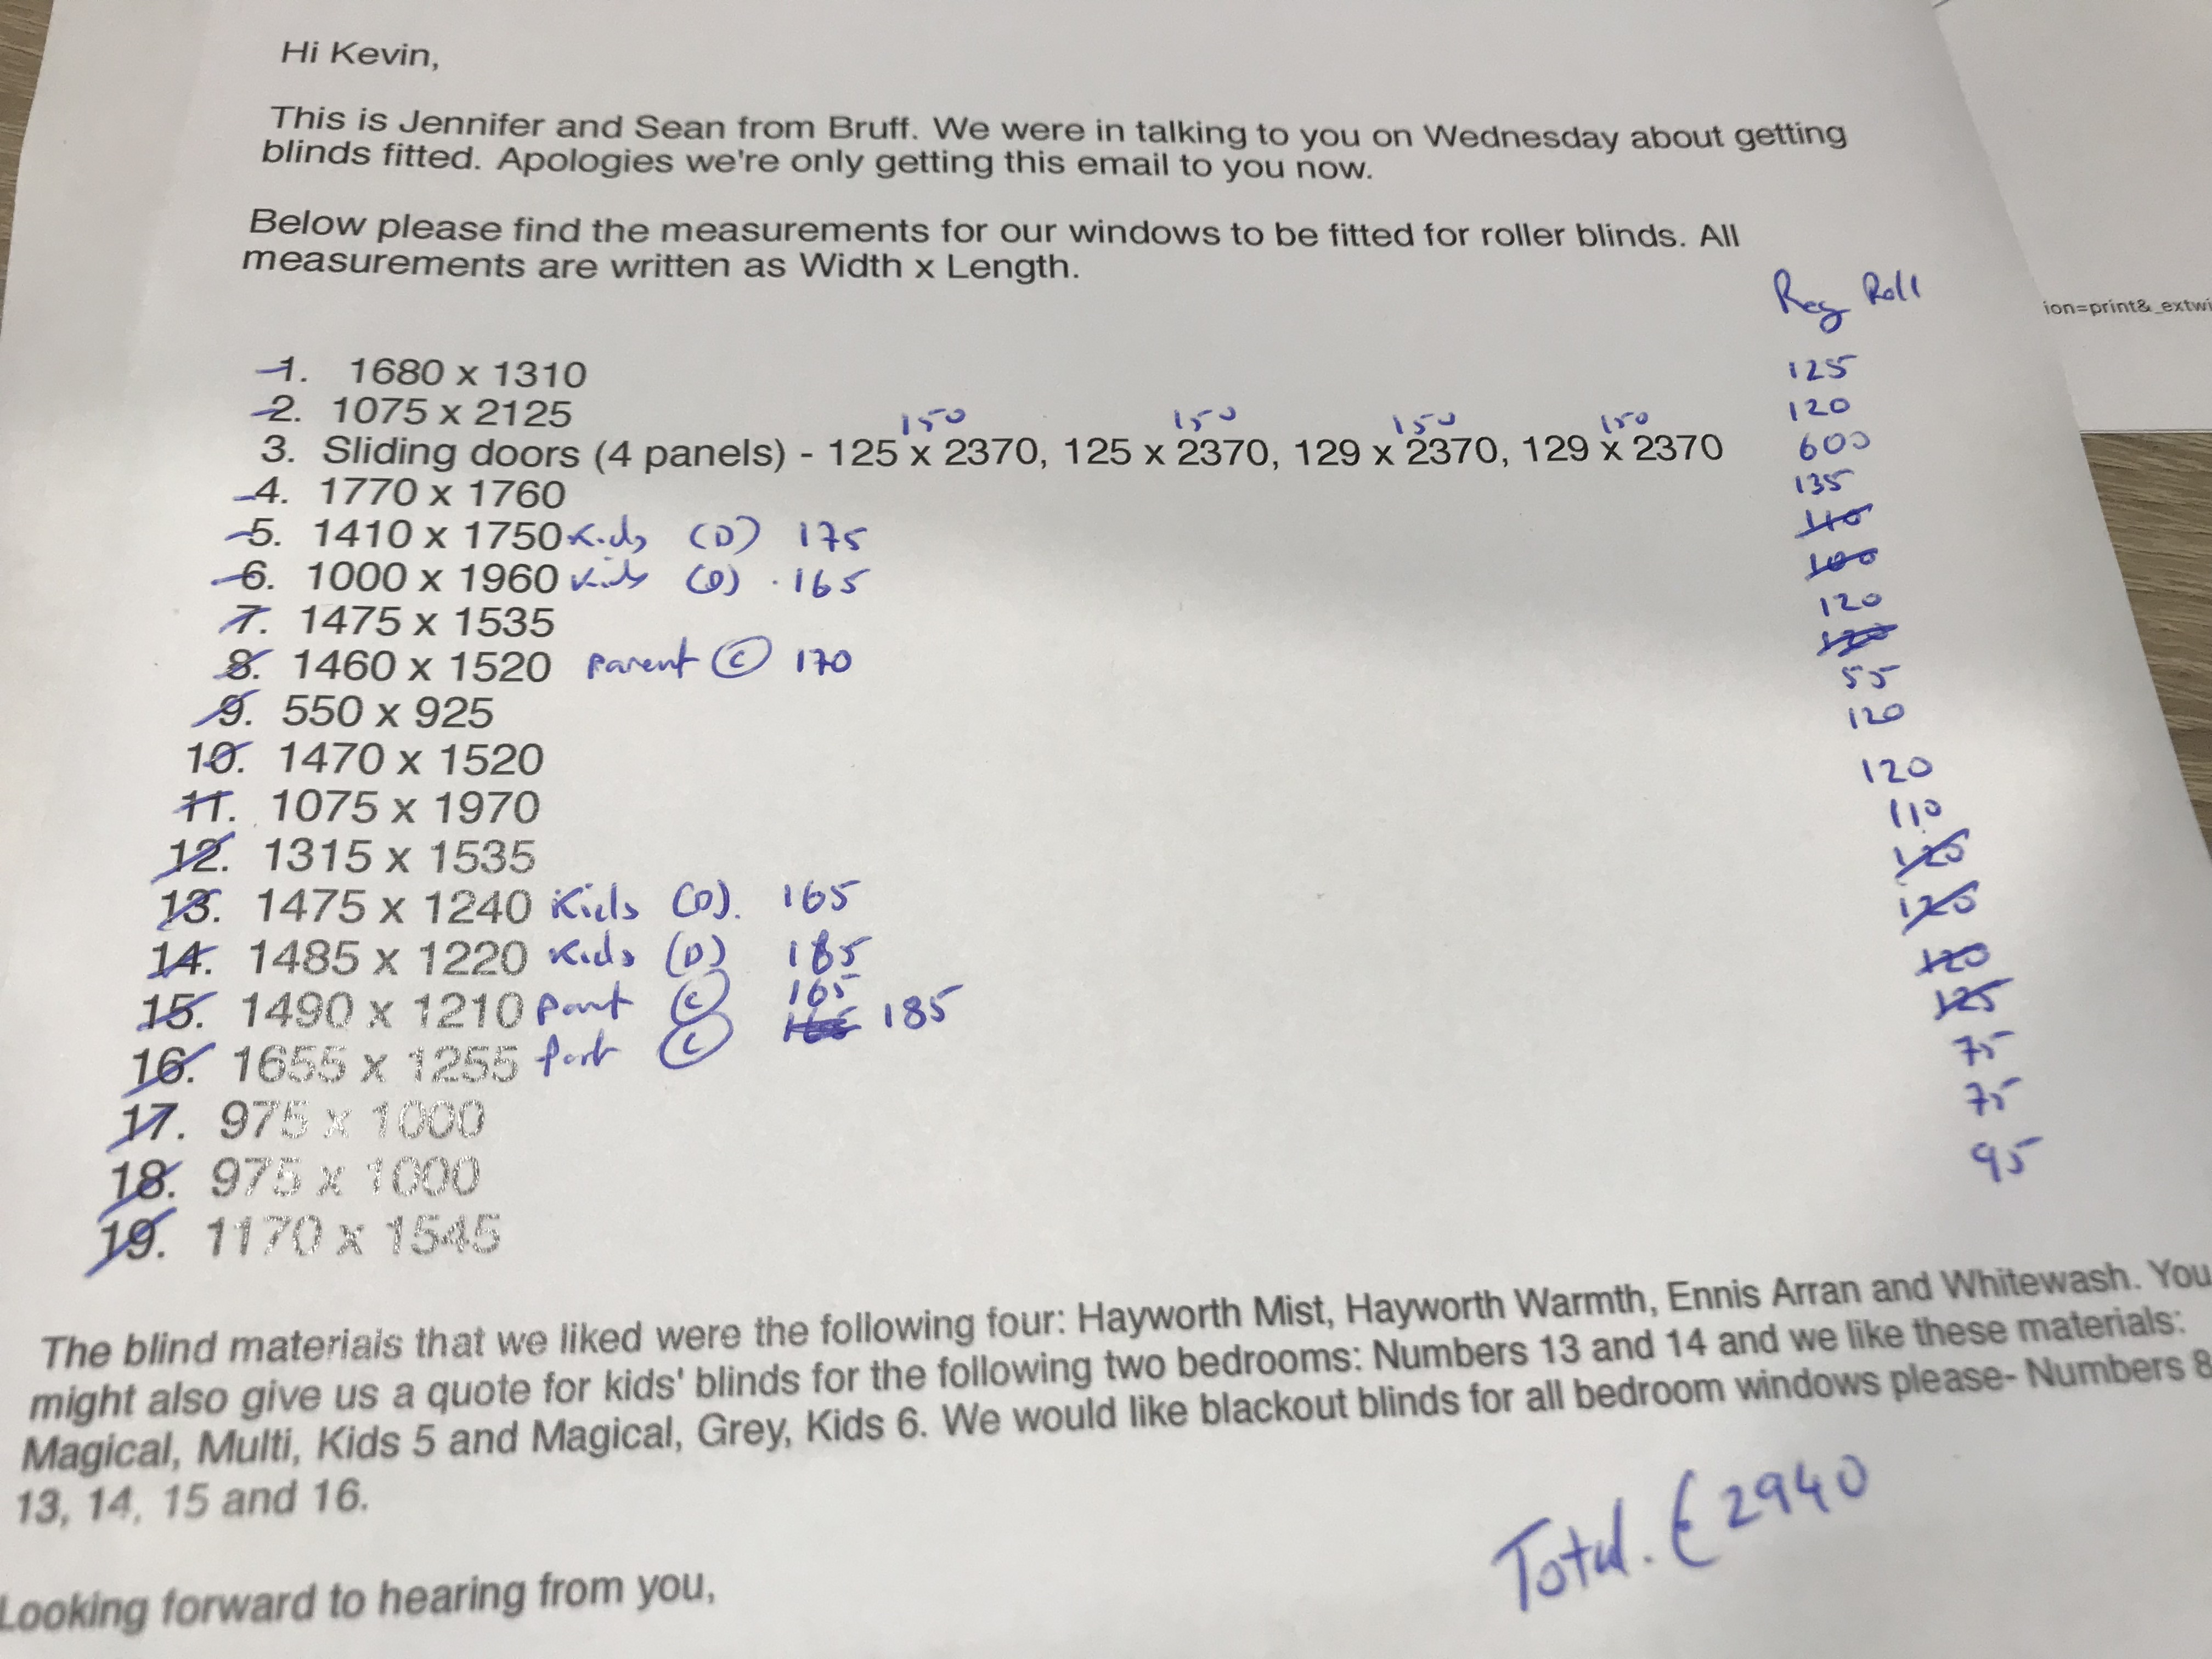 Hi Kevin,
This is Jennifer and Sean from Bruff. We were in talking to you on Wednesday about getting
blinds fitted. Apologies we're only getting this email to you now.
Below please find the measurements for our windows to be fitted for roller blinds. All
measurements are written as Width x Length.
Reg Roll
ion=print&_extwi
1. 1680 x 1310 125
2. 1075 x 2125 120
150 150 150 150
3. Sliding doors (4 panels) - 125 x 2370, 125 x 2370, 129 x 2370, 129 x 2370 600
4. 1770 x 1760 135
5. 1410 x 1750 Kids (D) 175 110
6. 1000 x 1960 Kids (D) 165 100
7. 1475 x 1535 120
8. 1460 x 1520 Parent (C) 170 120
9. 550 x 925 55
10. 1470 x 1520 120
11. 1075 x 1970 120
12. 1315 x 1535 110
13. 1475 x 1240 Kids (D). 165 120
14. 1485 x 1220 Kids (D) 185 120
15. 1490 x 1210 (C) 165 120
16. 1655 x 1255 (C) 185 125
17. 975 x 1000 75
18. 975 x 1000 75
19. 1170 x 1545 95
The blind materials that we liked were the following four: Hayworth Mist, Hayworth Warmth, Ennis Arran and Whitewash. You
might also give us a quote for kids' blinds for the following two bedrooms: Numbers 13 and 14 and we like these materials:
Magical, Multi, Kids 5 and Magical, Grey, Kids 6. We would like blackout blinds for all bedroom windows please- Numbers 8
13, 14, 15 and 16.
Total. €2940
Looking forward to hearing from you,